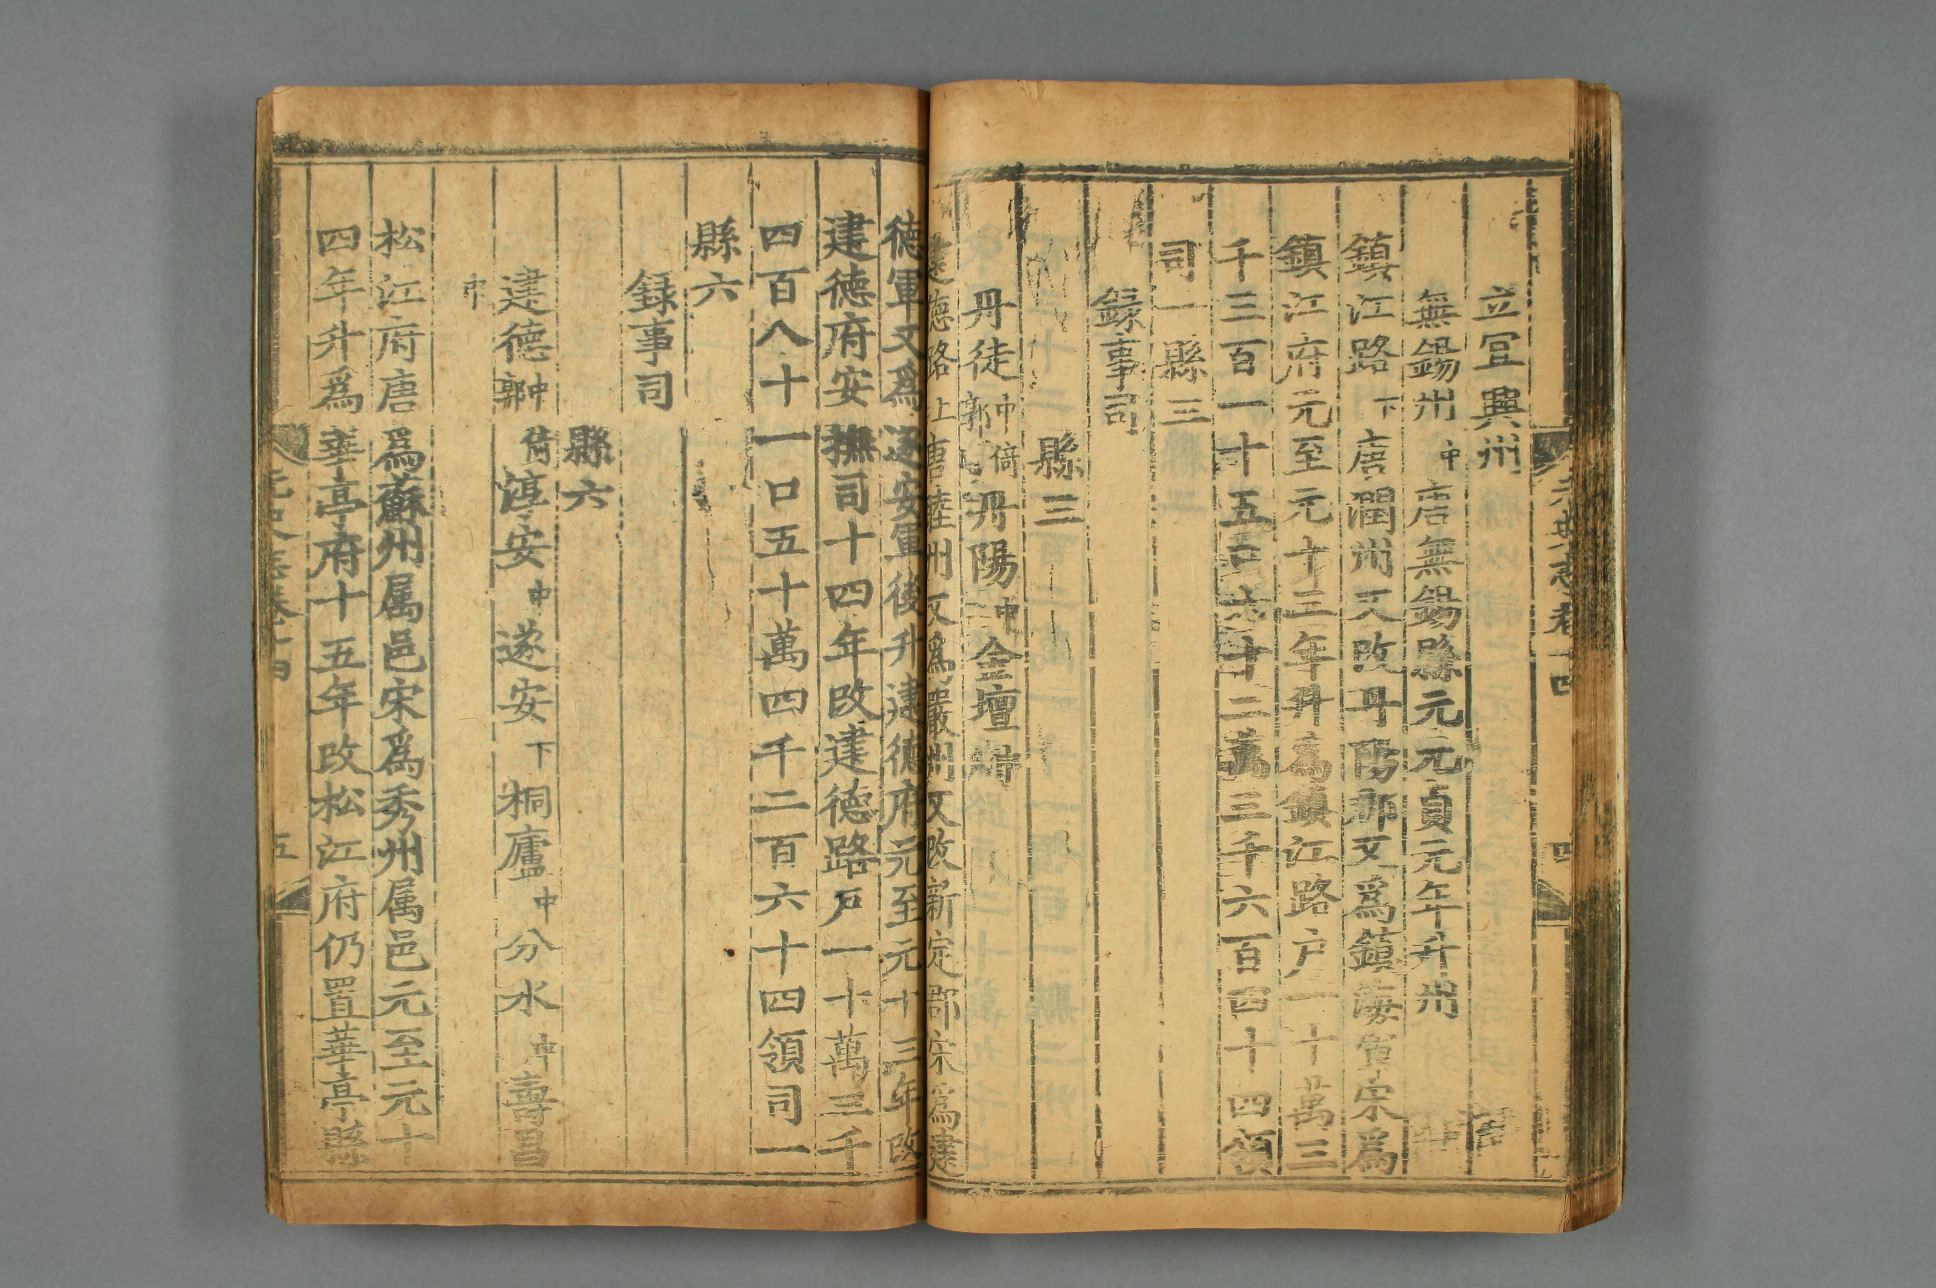 立宜興州
無錫州中唐無錫縣元元貞元年升州
鎮江路下唐潤州又改丹陽郡又為鎮海軍宋為
鎮江府元至元十三年升為鎮江路户一十萬三
千三百一十五口六十二萬三千六百四十四領
司一縣三
録事司
縣三
丹徒中倚郭丹陽中金壇
建德路上唐睦州又為嚴州又改新定郡宋為建
德軍又爲遂安軍後升建德府元至元十三年改
建德府安撫司十四年改建德路户一十萬三千
四百八十一口五十萬四千二百六十四領司一
縣六
録事司
縣六
建德中倚郭淳安中遂安下桐廬中分水中壽昌
中
松江府唐爲蘇州属邑宋爲秀州属邑元至元十
四年升爲華亭府十五年改松江府仍置華亭縣
元史志卷十四
五